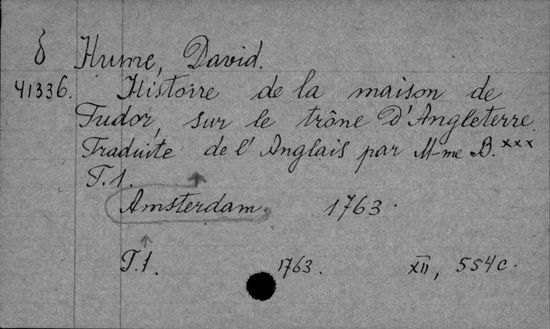 δ Hume, David.
41336. Histoire de la maison de
Tudor, sur le trône D'Angleterre.
Traduite de l'Anglais par M-me B.xxx
T.1.
Amsterdam. 1763.
T.1. 1763. XII, 554 c.